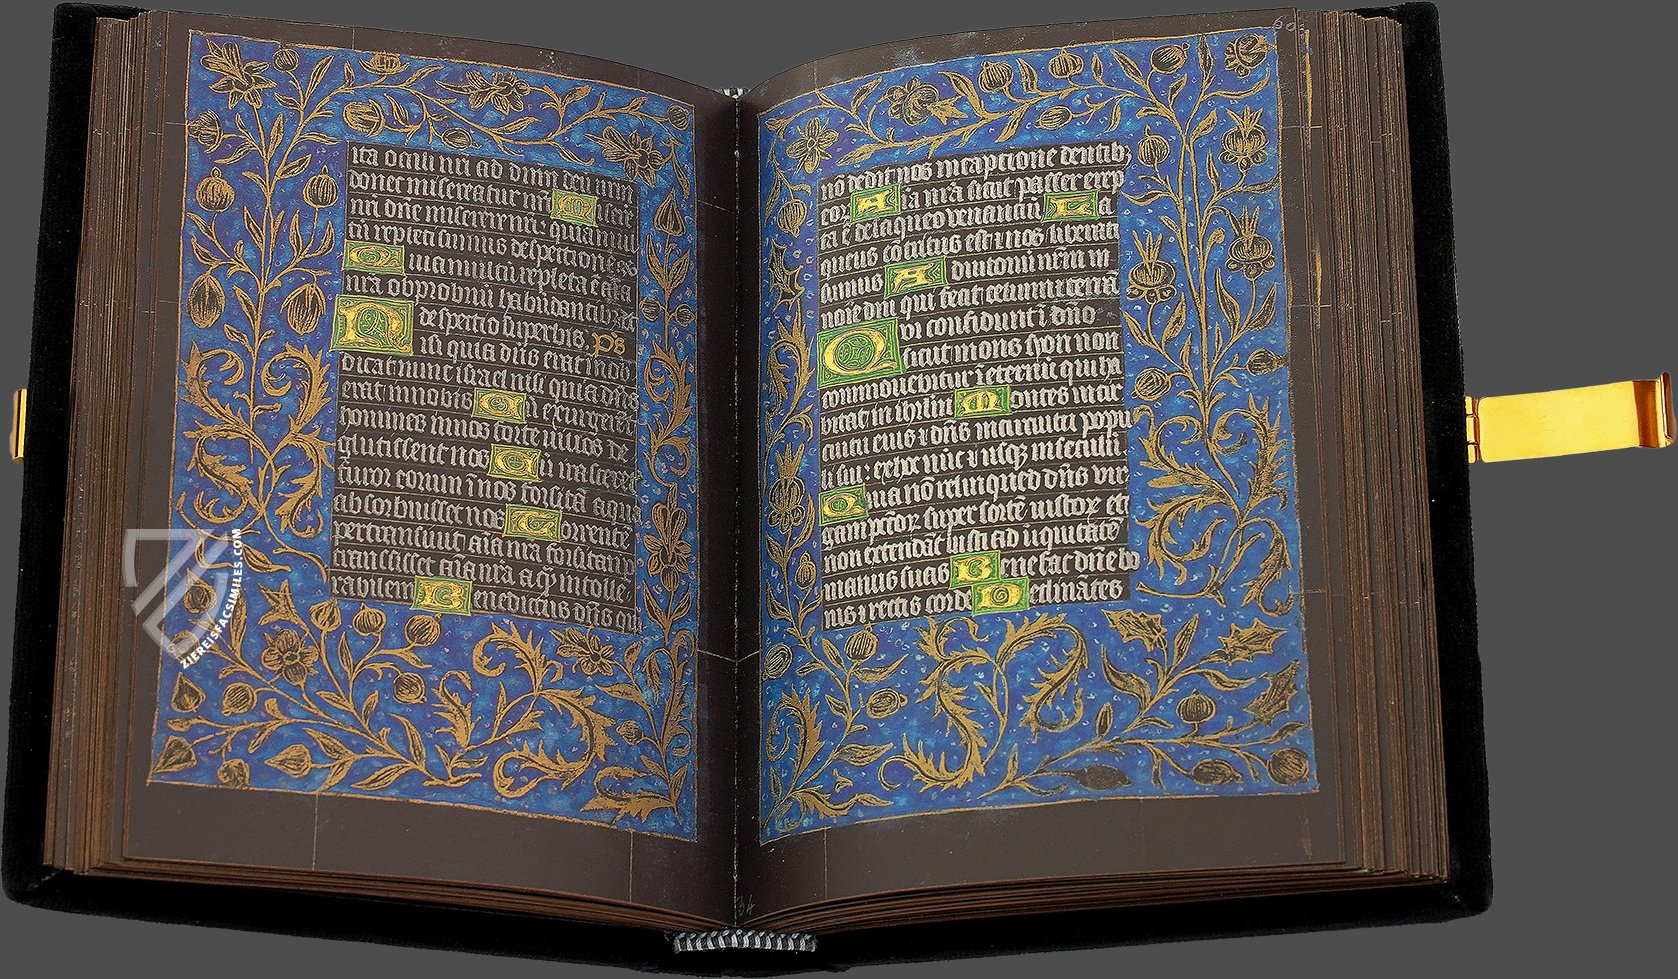 ita oculi nri ad dnm deu nrm
donec misereatur nri Misere
nri dne miserere nri: quia mul
tu repleti sumus despectione
Quia multu repleta e aia
nra obprobriu habundantibus
despectio superbis. ps
Nisi quia dns erat in nob
dicat nunc israel nisi quia dns
erat in nobis Cu exurgeret
homines in nos forte vivos de
glutissent nos Cu irasceret
furor eorum i nos forsita aqua
absorbuisset nos Torrente
pertransivit aia nra forsitan p
transisset aia nra aq intolle
rabilem Benedictus dns qui
60
no dedit nos in captione dentib
eor Aia nra sicut passer erep
ta e de laqueo venantiu La
queus cotritus est i nos liberati
sumus Adiutoriu nrm in
noie dni qui fecit celum i terra
Qui confidunt i dno
sicut mons syon non
commovebitur i eternu qui ha
bitat in ihrlm Montes in cir
cuitu eius i dns in circuitu popu
li sui: ex hoc nuc i usq in seculu
Quia no relinqued dns vir
gam pctor super sorte iustor ut
non extendat iusti ad iiquitate
manus suas Benefac dne bo
nis i rectis corde Declinates
34
ZIEREISFACSIMILES.COM